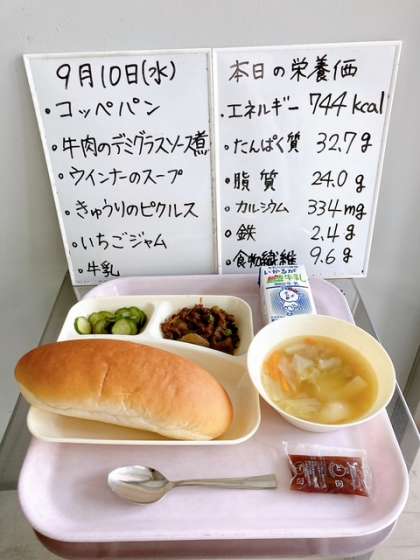 9月10日(水)
・コッペパン
・牛肉のデミグラスソース煮
・ウインナーのスープ
・きゅうりのピクルス
・いちごジャム
・牛乳
本日の栄養価
・エネルギー 744kcal
・たんぱく質 32.7g
・脂質 24.0g
・カルシウム 334mg
・鉄 2.4g
・食物繊維 9.6g
いかるが
牛乳